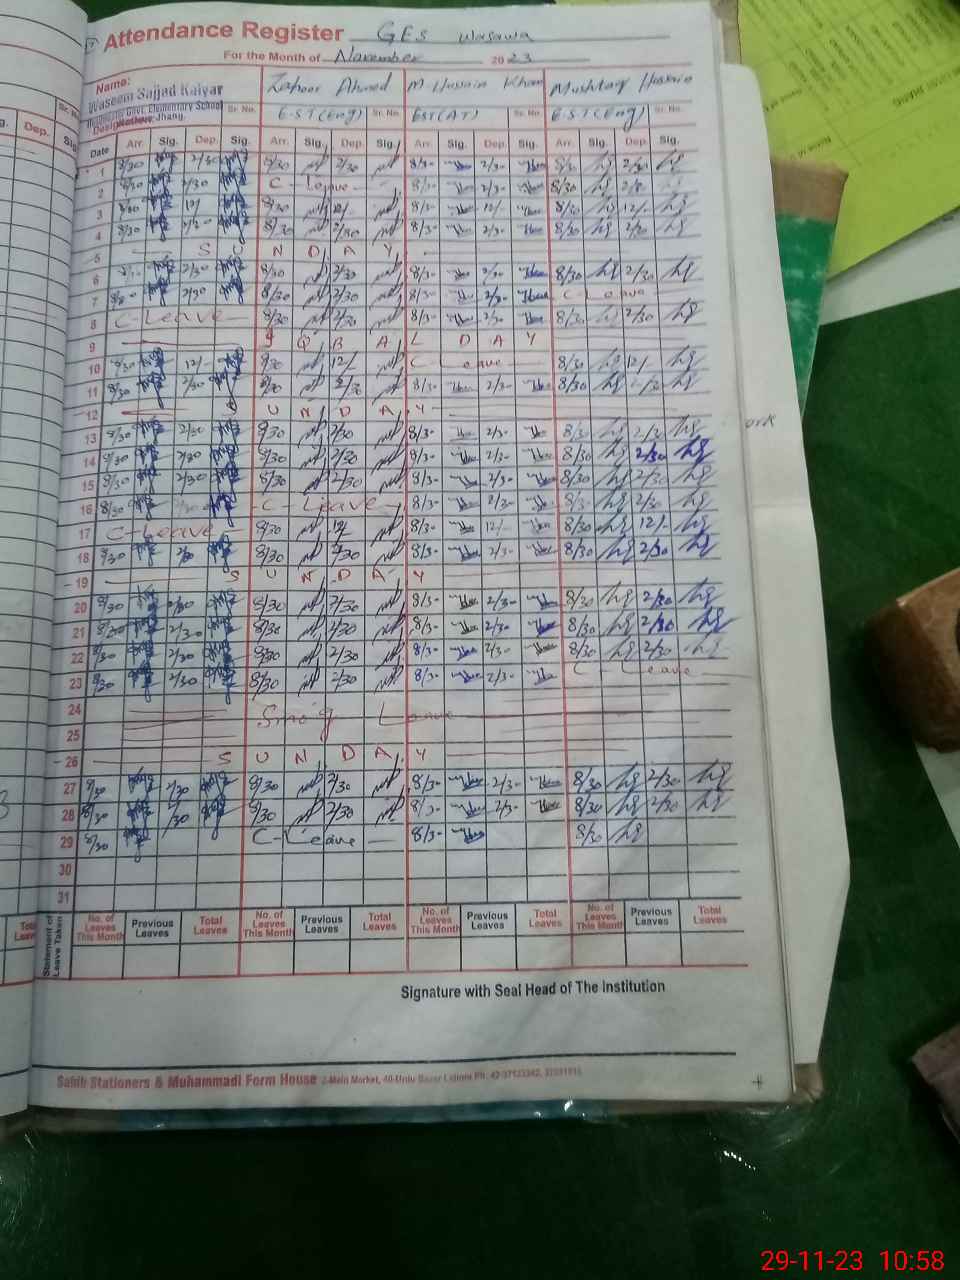 Attendance Register GES Wasawa
For the Month of November 2023
Name: Zahoor Ahmed M. Husnain Khan Mushtaq Husnain
Waseem Sajjad Kalyar
Govt. Elementary School Sr. No. E.S.T(Eng) Sr. No. EST(AT) Sr. No. E.S.T(Eng) Sr. No.
Jhang.
Date Arr. Sig. Dep. Sig. Arr. Sig. Dep. Sig. Arr. Sig. Dep. Sig. Arr. Sig. Dep. Sig.
1 8/30 2/30 8/30 2/30 8/30 2/30 8/30 2/30
2 8/30 2/30 C-Leave 8/30 2/30 8/30 2/30
3 8/30 12/- 8/30 12/- 8/30 12/- 8/30 12/-
4 8/30 2/30 8/30 2/30 8/30 2/30 8/30 2/30
5 S U N D A Y
6 2/30 8/30 2/30 8/30 2/30 8/30 2/30
7 8/30 2/30 8/30 2/30 8/30 2/30 C-Leave
8 C-Leave 8/30 2/30 8/30 2/30 8/30 2/30
9 I Q B A L D A Y
10 8/30 12/- 8/30 12/- C-Leave 8/30 12/-
11 8/30 2/30 8/30 2/30 8/30 2/30 8/30 2/30
12 S U N D A Y
13 8/30 2/30 8/30 2/30 8/30 2/30 8/30 2/30
14 8/30 2/30 8/30 2/30 8/30 2/30 8/30 2/30
15 8/30 2/30 8/30 2/30 8/30 2/30 8/30 2/30
16 8/30 2/30 C-Leave 8/30 2/30 8/30 2/30
17 C-Leave 8/30 12/- 8/30 12/- 8/30 12/-
18 8/30 2/30 8/30 2/30 8/30 2/30 8/30 2/30
19 S U N D A Y
20 8/30 2/30 8/30 2/30 8/30 2/30 8/30 2/30
21 8/30 2/30 8/30 2/30 8/30 2/30 8/30 2/30
22 8/30 2/30 8/30 2/30 8/30 2/30 8/30 2/30
23 8/30 2/30 8/30 2/30 8/30 2/30 C-Leave
24 Smog Leave
25
26 S U N D A Y
27 8/30 2/30 8/30 2/30 8/30 2/30 8/30 2/30
28 8/30 2/30 8/30 2/30 8/30 2/30 8/30 2/30
29 8/30 C-Leave 8/30 8/30
30
31
Statement of Leave Taken No. of Leaves This Month Previous Leaves Total Leaves No. of Leaves This Month Previous Leaves Total Leaves No. of Leaves This Month Previous Leaves Total Leaves No. of Leaves This Month Previous Leaves Total Leaves
Signature with Seal Head of The Institution
Sahib Stationers & Muhammadi Form House 2-Main Market, 40-Urdu Bazar Lahore
29-11-23 10:58